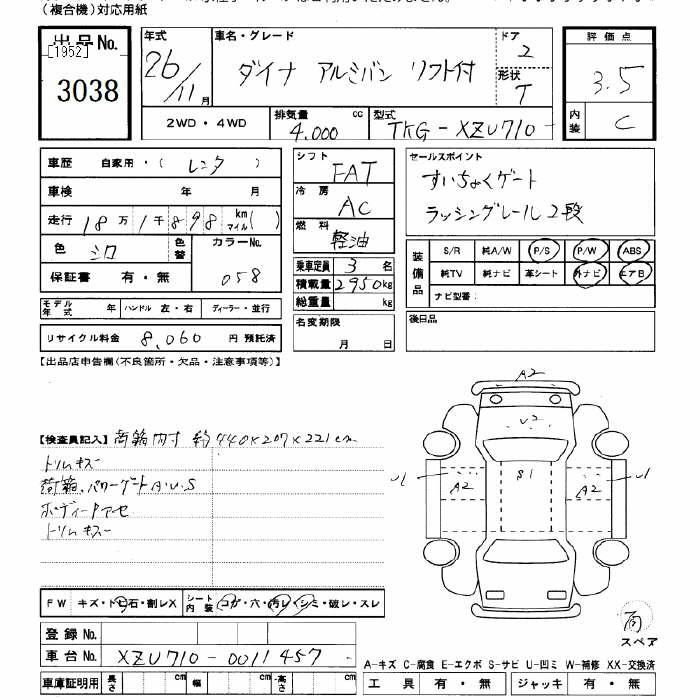 (複合機)対応用紙
出品No.
[1952]
3038
年式
26/11月
車名・グレード
ダイナ アルミバン リフト付
ドア
2
形状
T
評価点
3.5
内装
C
2WD・4WD
排気量
4.000 cc
型式
TKG-XZU710-
車歴 自家用・( レンタ )
車検 年 月
走行 18万1千898 km マイル( )
色 シロ
色替
カラーNo.
058
保証書 有・無
モデル年式 年 ハンドル 左・右 ディーラー・並行
リサイクル料金 8,060 円 預託済
シフト
FAT
冷房
AC
燃料
軽油
乗車定員 3 名
積載量 2950kg
総重量 kg
名変期限
月 日
セールスポイント
すいちょくゲート
ラッシングレール2段
装備品
S/R 純A/W P/S P/W ABS
純TV 純ナビ 革シート 外ナビ エアB
ナビ型番:
後日品
【出品店申告欄(不良箇所・欠品・注意事項等)】
【検査員記入】荷箱内寸 約440×207×221cm
トリムキズ
荷箱、パワーゲートA・U・S
ボディー下サビ
トリムキズ
A2
U2
U1
A2
S1
A2
U1
スペア
FW キズ・トビ石・割レX
シート内装 コゲ・穴・汚レ・シミ・破レ・スレ
登録No.
車台No. XZU710-0011457
車庫証明用 長さ cm 幅 cm 高さ cm
A-キズ C-腐食 E-エクボ S-サビ U-凹ミ W-補修 XX-交換済
工具 有・無 ジャッキ 有・無